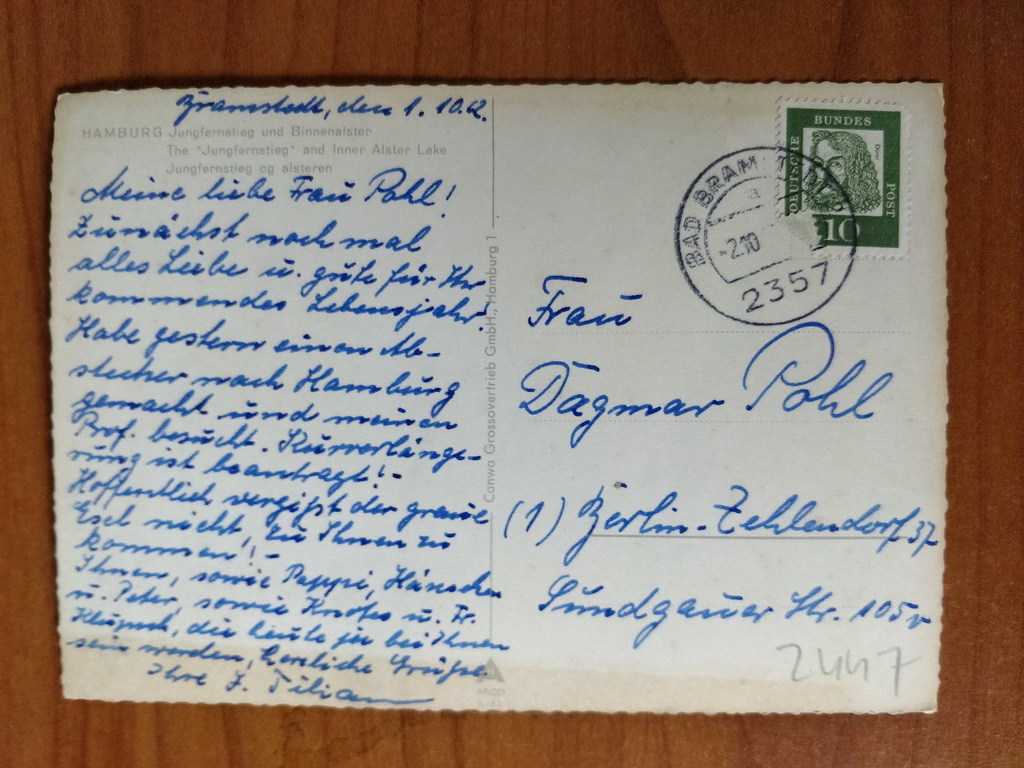 Bramstedt, den 1.10.62.
HAMBURG Jungfernstieg und Binnenalster
The "Jungfernstieg" and Inner Alster Lake
Jungfernstieg og alsteren
Meine liebe Frau Pohl!
Zunächst noch mal
alles Liebe u. gute für Ihr
kommendes Lebensjahr!
Habe gestern einen Ab-
stecher nach Hamburg
gemacht und meinen
Prof. besucht. Kurverlänge-
rung ist beantragt!-
Hoffentlich vergißt der graue
Esel nicht, zu Ihnen zu
kommen!-
Ihnen, sowie Pappi, Hänschen
u. Peter, sowie u. Fr.
die heute ja bei Ihnen
sein werden, herzliche Grüße.
Ihre J.
Conwa Grossovertrieb GmbH., Hamburg 1
DEUTSCHE BUNDES POST
Dürer
10
BAD BRAMSTEDT
a
-2.10
2357
Frau
Dagmar Pohl
(1) Berlin-Zehlendorf 37
Sundgauer Str. 105v
2447